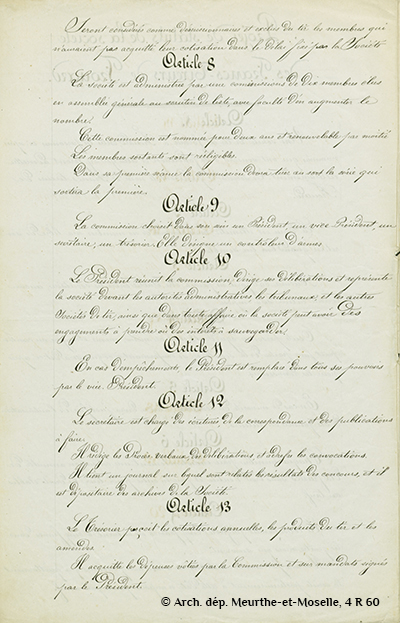 Seront considérés comme démissionnaires et exclus du tir les membres qui
n'auraient pas acquitté leur cotisation dans le délai fixé par la Société
Article 8
La société est administrée par une commission de Dix membres élus
en assemblée générale au scrutin de liste, avec faculté d'en augmenter le
nombre.
Cette commission est nommée pour deux ans et renouvelable par moitié
Les membres sortants sont rééligibles.
Dans sa première séance la commission devra tirer au sort la série qui
sortira la première.
Article 9
La commission choisit dans son sein un Président, un vice Président, un
secrétaire, un trésorier. Elle désigne un contrôleur d'armes
Article 10
Le Président réunit la commission, dirige ses délibérations et représente
la société devant les autorités administratives les tribunaux, et les autres
Sociétés de tir, ainsi que dans toute affaire où la société peut avoir des
engagements à prendre ou des intérêts à sauvegarder.
Article 11
En cas d'empêchements, le Président est remplacé dans tous ses pouvoirs
par le vice Président.
Article 12
Le secrétaire est chargé des écritures de la correspondance et des publications
à faire.
Il rédige les Procès verbaux des délibérations et rédige les convocations.
Il tient un journal sur lequel sont relatés les résultats des concours, et il
est dépositaire des archives de la Société.
Article 13
Le Trésorier perçoit les cotisations annuelles, les produits du tir et les
amendes
Il acquitte les dépenses votées par la Commission et sur mandats signés
par le Président.
© Arch. dép. Meurthe-et-Moselle, 4 R 60